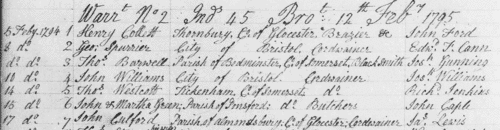 Warrt. No 2 Ind 45 Brot. 12th Feby 1795
5 Feby. 1794 1 Henry Collett Thornbury, C. of Glocester Brazier & John Ford
8 do. 2 Geoe. Spurrier City of Bristol, Cordwainer Edwd. T. Cann
do. do. 3 Thos. Bagwell Parish of Bedminster, C. of Somerset, Black Smith Josh. Gunning
10 do. 4 John Williams City of Bristol. Cordwainer Josh. Williams
14 do. 5 Thos. Westcott Tickenham, C. of Somerset, do. Richd. Jenkins
15 do. 6 John & Martha Green, Parish of Butchers John Caple
17 do. 7 John Parish of almondsbury, C. of Glocester, Cordwainer Jas. Lewis